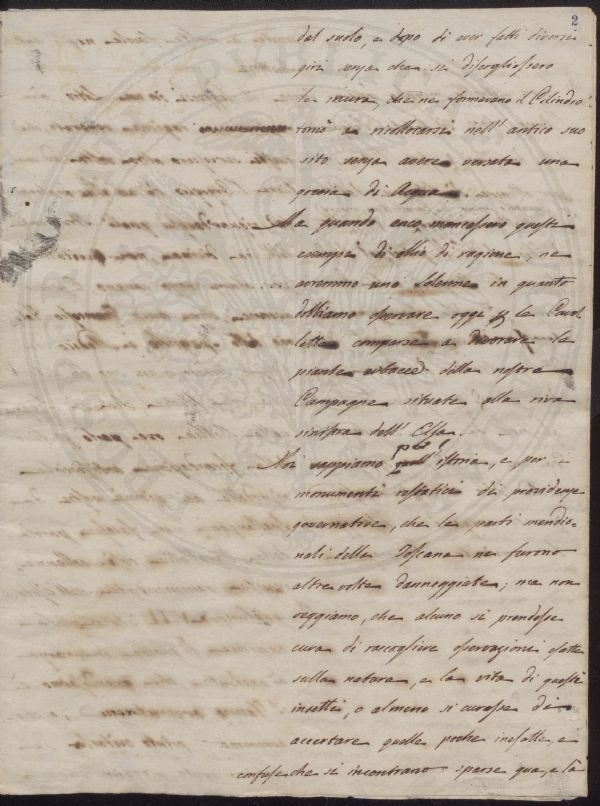 2
dal suolo, e dopo di aver fatti diversi
giri senza che si disciogliessero
le mura, che ne formavano il Cilindro
tornò a ricollocarsi nell'antico suo
sito senza avere versata una
goccia di Acqua.
Ma quando anco mancassero questi
esempi di ollio di ragione, ne
avremmo uno solenne in quanto
dobbiamo osservare oggi le Caval
lette comparse a divorare le
piante erbacee della nostra
Campagne situate alla riva
sinistra dell'Elsa.
Noi sappiamo per l'istoria, e per i
monumenti restatici di providenze
governative, che le parti meridio-
nali della Toscana ne furono
altre volte danneggiate; ma non
veggiamo, che alcuno si prendesse
cura di raccogliere osservazioni esatte
sulla natura, e la vita di questi
insetti, o almeno si curasse di
accertare quelle poche inesatte, e
confuse che si incontrano sparse qua, e là